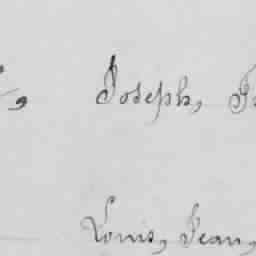 Joseph,
Louis, Jean,